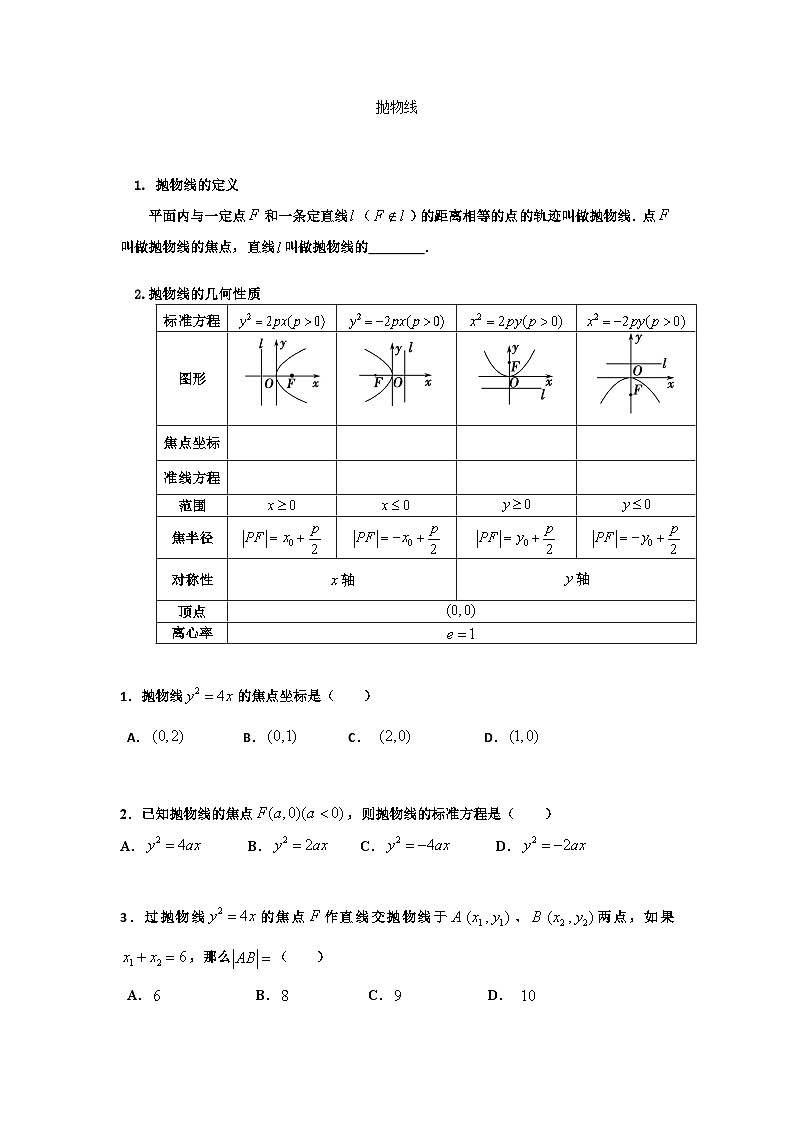 抛物线
1. 抛物线的定义
平面内与一定点 F 和一条定直线 l ( F ∉ l ) 的距离相等的点的轨迹叫做抛物线. 点 F
叫做抛物线的焦点, 直线 l 叫做抛物线的________.
2. 抛物线的几何性质
标准方程 y² = 2px(p > 0) y² = −2px(p > 0) x² = 2py(p > 0) x² = −2py(p > 0)
图形 l y O F x y l F O x y F O x l y O l F x
焦点坐标
准线方程
范围 x ≥ 0 x ≤ 0 y ≥ 0 y ≤ 0
焦半径 |PF| = x₀ + p/2 |PF| = −x₀ + p/2 |PF| = y₀ + p/2 |PF| = −y₀ + p/2
对称性 x 轴 y 轴
顶点 (0,0)
离心率 e = 1
1. 抛物线 y² = 4x 的焦点坐标是( )
A. (0,2) B. (0,1) C. (2,0) D. (1,0)
2. 已知抛物线的焦点 F(a,0)(a < 0), 则抛物线的标准方程是( )
A. y² = 4ax B. y² = 2ax C. y² = −4ax D. y² = −2ax
3. 过抛物线 y² = 4x 的焦点 F 作直线交抛物线于 A (x₁, y₁)、B (x₂, y₂) 两点, 如果
x₁ + x₂ = 6, 那么 |AB| = ( )
A. 6 B. 8 C. 9 D. 10